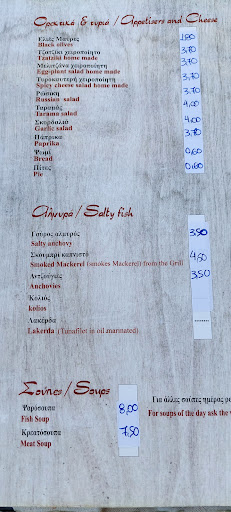 Ορεκτικά & τυριά / Appetisers and Cheese
Ελιές Μαύρες
Black olives
1,80
Τζατζίκι χειροποίητο
Tzatziki home made
3,70
Μελιτζάνα χειροποίητη
Eggplant salad home made
3,70
Τυροκαυτερή χειροποίητη
Spicy cheese salad home made
3,70
Ρώσικη
Russian salad
3,70
Ταραμάς
Tarama salad
4,00
Σκορδαλιά
Garlic salad
4,00
Πάπρικα
Paprika
3,70
Ψωμί
Bread
0,60
Πίτες
Pie
0,60
Αλμυρά / Salty fish
Γαύρος αλμυρός
Salty anchovy
3,50
Σκουμπρί καπνιστό
Smoked Mackerel (smokes Mackerel) from the Grill
4,50
Αντζούγιες
Anchovies
3,50
Κολιός
kolios
Λακέρδα
Lakerda (Tunafilet in oil marinated)
Σούπες / Soups
Ψαρόσουπα
Fish Soup
8,00
Κρεατόσουπα
Meat Soup
7,50
Για άλλες σούπες ημέρας
For soups of the day ask the